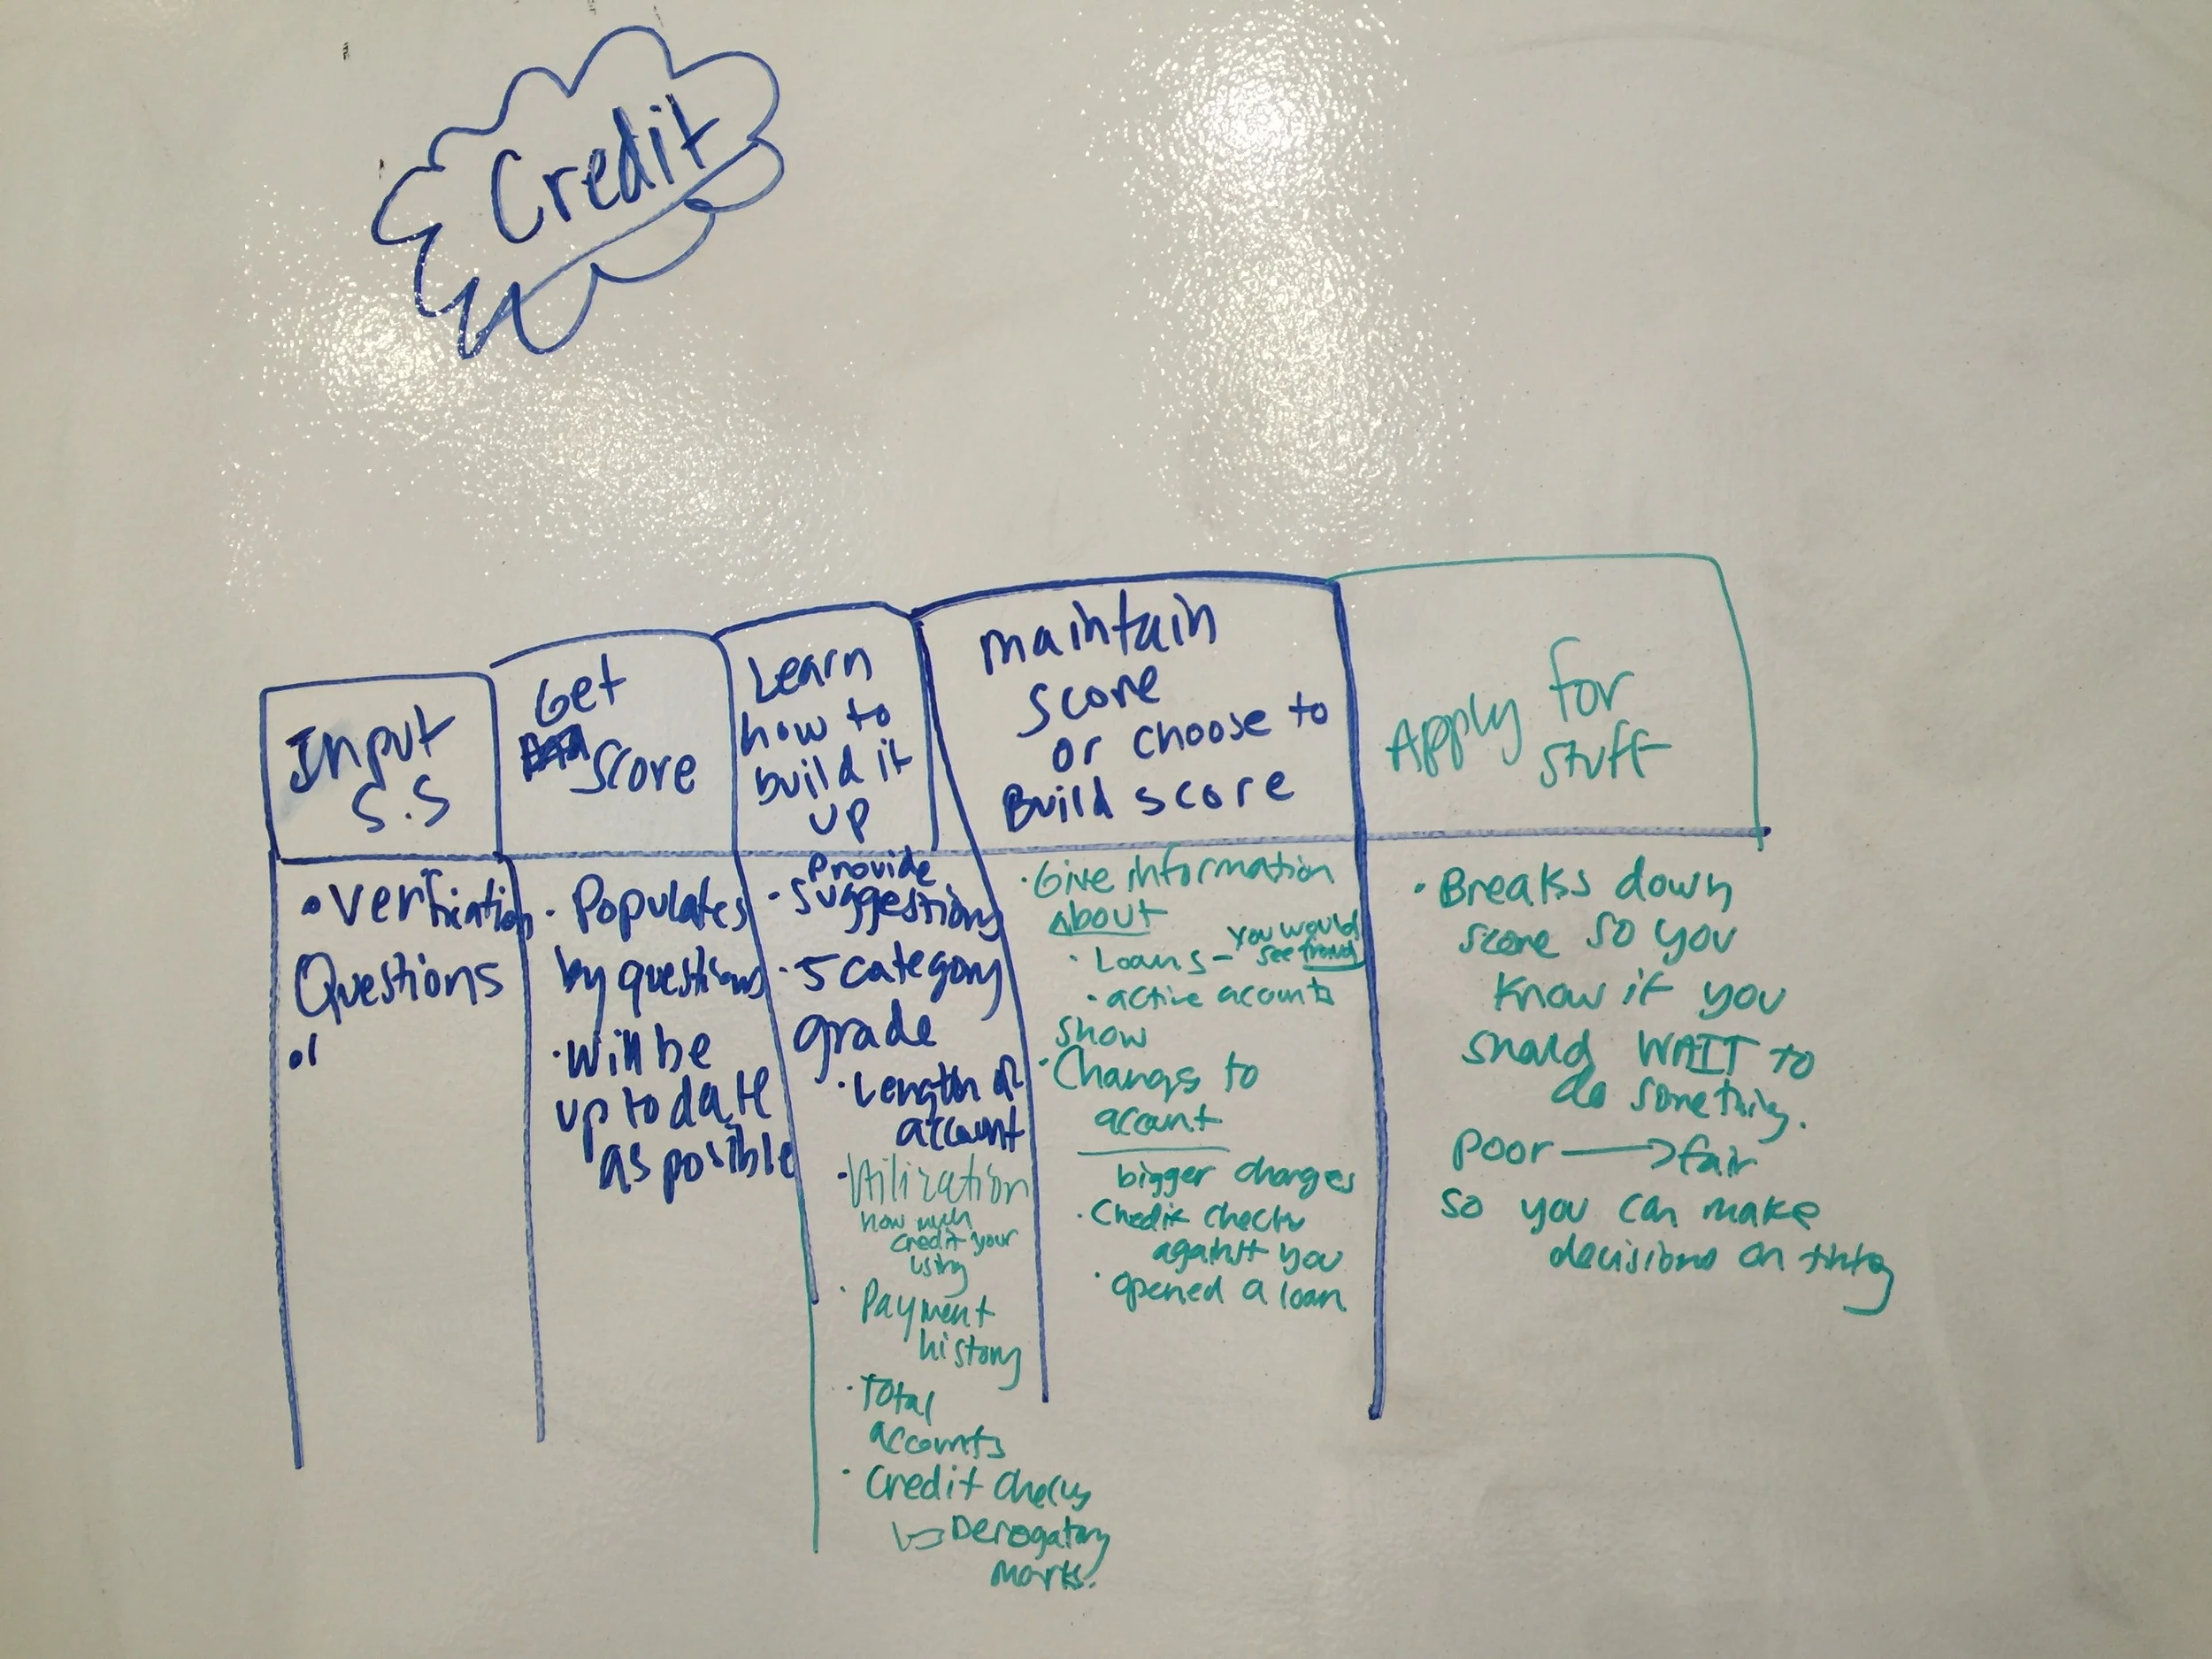 Credit
Input
S.S
Get
Score
Learn
how to
build it
up
maintain
score
or choose to
Build score
Apply for
stuff
• Verification
Questions
•
• Populates
by questions
• will be
up to date
as posible
Provide
• suggestions
• 5 category
grade
• Length of
account
• Utilization
how much
credit your
using
• Payment
history
• Total
accounts
• Credit checks
↳ Derogatory
marks.
• Give information
about
• Loans - you would
see fraud
• active acounts
show
• Changes to
acount
bigger changes
• Credit checks
against you
• opened a loan
• Breaks down
score so you
know if you
should WAIT to
do something.
poor → fair
so you can make
decisions on